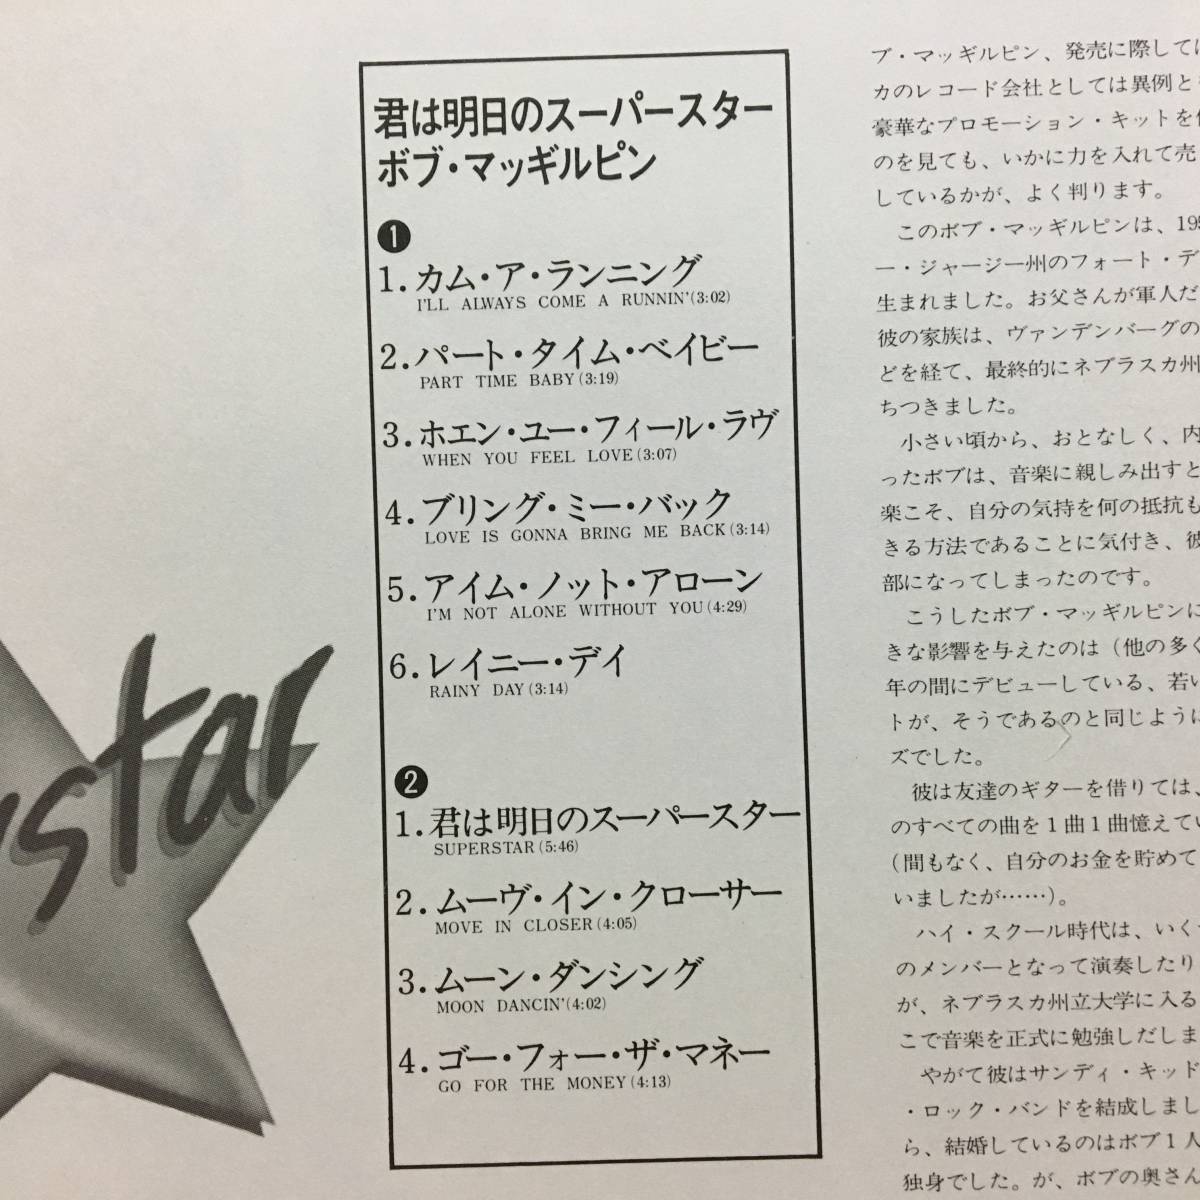 君は明日のスーパースター
ボブ・マッギルピン
❶
1.カム・ア・ランニング
I'LL ALWAYS COME A RUNNIN'(3:02)
2.パート・タイム・ベイビー
PART TIME BABY(3:19)
3.ホエン・ユー・フィール・ラヴ
WHEN YOU FEEL LOVE(3:07)
4.ブリング・ミー・バック
LOVE IS GONNA BRING ME BACK(3:14)
5.アイム・ノット・アローン
I'M NOT ALONE WITHOUT YOU(4:29)
6.レイニー・デイ
RAINY DAY(3:14)
❷
1.君は明日のスーパースター
SUPERSTAR(5:46)
2.ムーヴ・イン・クローサー
MOVE IN CLOSER(4:05)
3.ムーン・ダンシング
MOON DANCIN'(4:02)
4.ゴー・フォー・ザ・マネー
GO FOR THE MONEY(4:13)
star
ブ・マッギルピン、発売に際しては
カのレコード会社としては異例と
豪華なプロモーション・キットを
のを見ても、いかに力を入れて売
しているかが、よく判ります。
このボブ・マッギルピンは、195
ー・ジャージー州のフォート・デ
生まれました。お父さんが軍人だ
彼の家族は、ヴァンデンバーグの
どを経て、最終的にネブラスカ州
ちつきました。
小さい頃から、おとなしく、内
ったボブは、音楽に親しみ出すと
楽こそ、自分の気持を何の抵抗も
きる方法であることに気付き、彼
部になってしまったのです。
こうしたボブ・マッギルピンに
きな影響を与えたのは(他の多く
年の間にデビューしている、若い
トが、そうであるのと同じように
ズでした。
彼は友達のギターを借りては、
のすべての曲を1曲1曲憶えてい
(間もなく、自分のお金を貯めて
いましたが……)。
ハイ・スクール時代は、いく
のメンバーとなって演奏したり
が、ネブラスカ州立大学に入る
こで音楽を正式に勉強しだしま
やがて彼はサンディ・キッド
・ロック・バンドを結成しまし
ら、結婚しているのはボブ1人
独身でした。が、ボブの奥さん